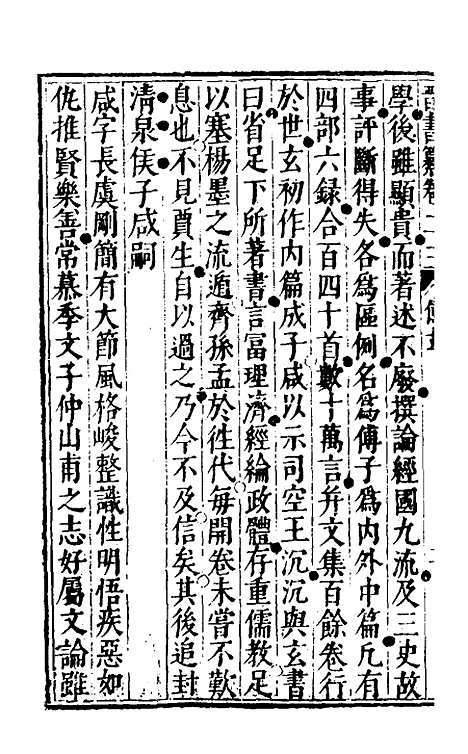 學後雖顯貴而著述不廢撰論經國九流及三史故
事評斷得失各爲區例名爲傅子爲內外中篇凡有
四部六録合百四十首數十萬言并文集百餘卷行
於世玄初作內篇成子咸以示司空王沉沉與玄書
曰省足下所著書言冨理濟經綸政體存重儒教足
以塞楊墨之流遁齊孫孟於徃代毎開卷未嘗不歎
息也不見賈生自以過之乃今不及信矣其後追封
清泉侯子咸嗣
咸字長虞剛簡有大節風格峻整識性明悟疾惡如
仇推賢樂善常慕季文子仲山甫之志好屬文論雖